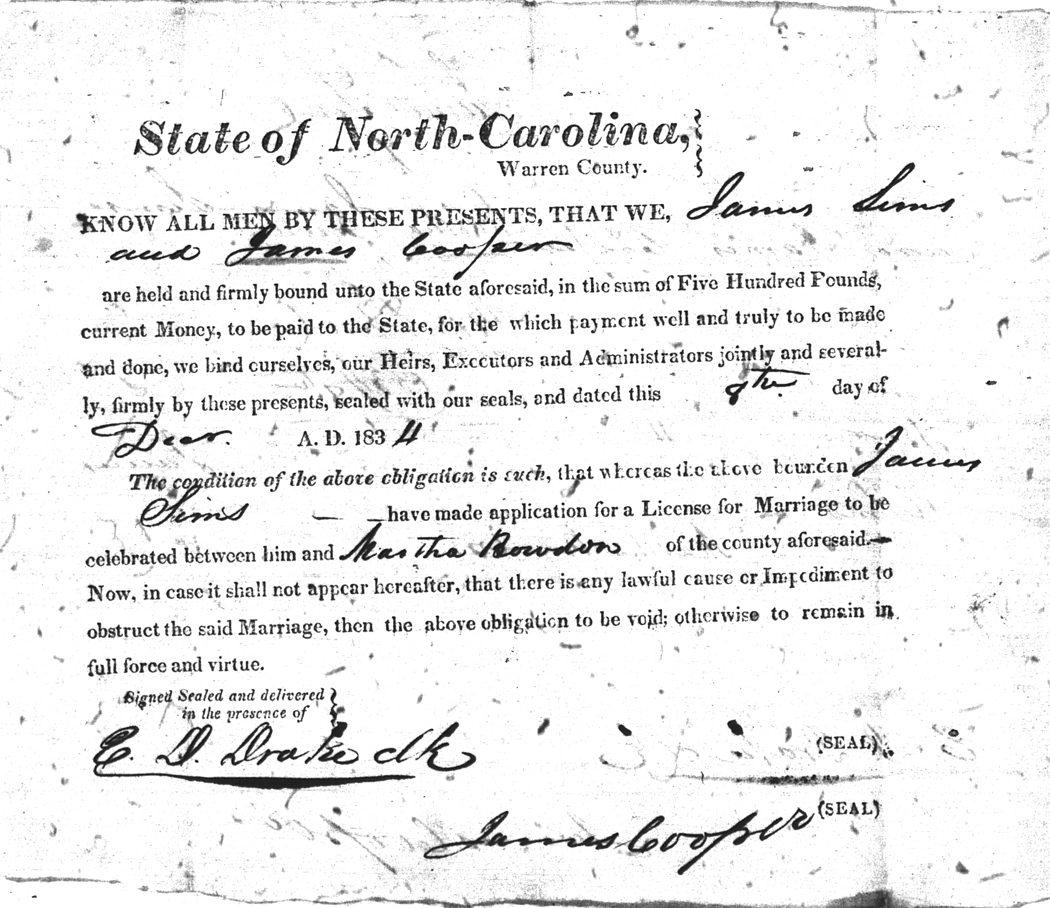 State of North-Carolina,
Warren County.
KNOW ALL MEN BY THESE PRESENTS, THAT WE, James Sims
and James Cooper
are held and firmly bound unto the State aforesaid, in the sum of Five Hundred Pounds,
current Money, to be paid to the State, for the which payment well and truly to be made
and done, we bind ourselves, our Heirs, Executors and Administrators jointly and several-
ly, firmly by these presents, sealed with our seals, and dated this 8th. day of
A. D. 1834
The condition of the above obligation is such, that whereas the above bounden James
Sims have made application for a License for Marriage to be
celebrated between him and Martha Bowdon of the county aforesaid.—
Now, in case it shall not appear hereafter, that there is any lawful cause or Impediment to
obstruct the said Marriage, then the above obligation to be void; otherwise to remain in
full force and virtue.
Signed Sealed and delivered
in the presence of
E. D. Drake clk
(SEAL)
(SEAL)
James Cooper